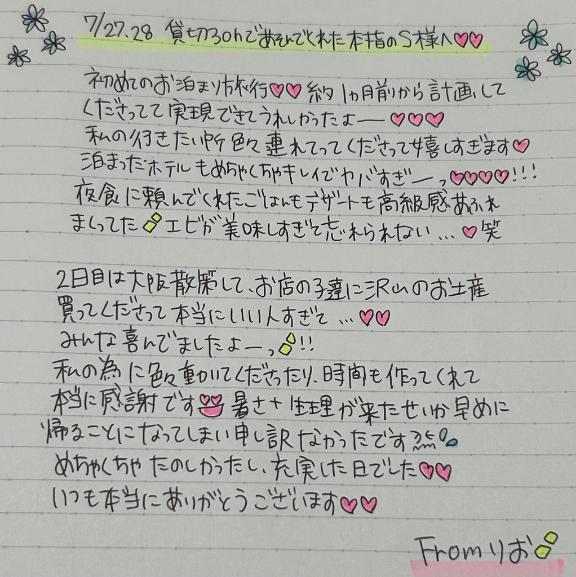 7/27.28 貸切30hであそんでくれた本指のS様へ♡♡
初めてのお泊まり旅行♡♡ 約1ヵ月前から計画して
くださってて実現できてうれしかったよー♡♡♡
私の行きたい所色々連れてってくださって嬉しすぎます♡
泊まったホテルもめちゃくちゃキレイでヤバすぎーっ♡♡♡♡!!!
夜食に頼んでくれたごはんもデザートも高級感あふれ
まくってた エビが美味しすぎて忘れられない...♡笑
2日目は大阪散策して、お店の子達に沢山のお土産
買ってくださって本当にいい人すぎて...♡♡
みんな喜んでましたよーっ!!
私の為に色々動いてくださったり、時間も作ってくれて
本当に感謝です 暑さ+生理が来たせいか早めに
帰ることになってしまい申し訳なかったです
めちゃくちゃたのしかったし、充実した日でした♡♡
いつも本当にありがとうございます♡♡
From りお